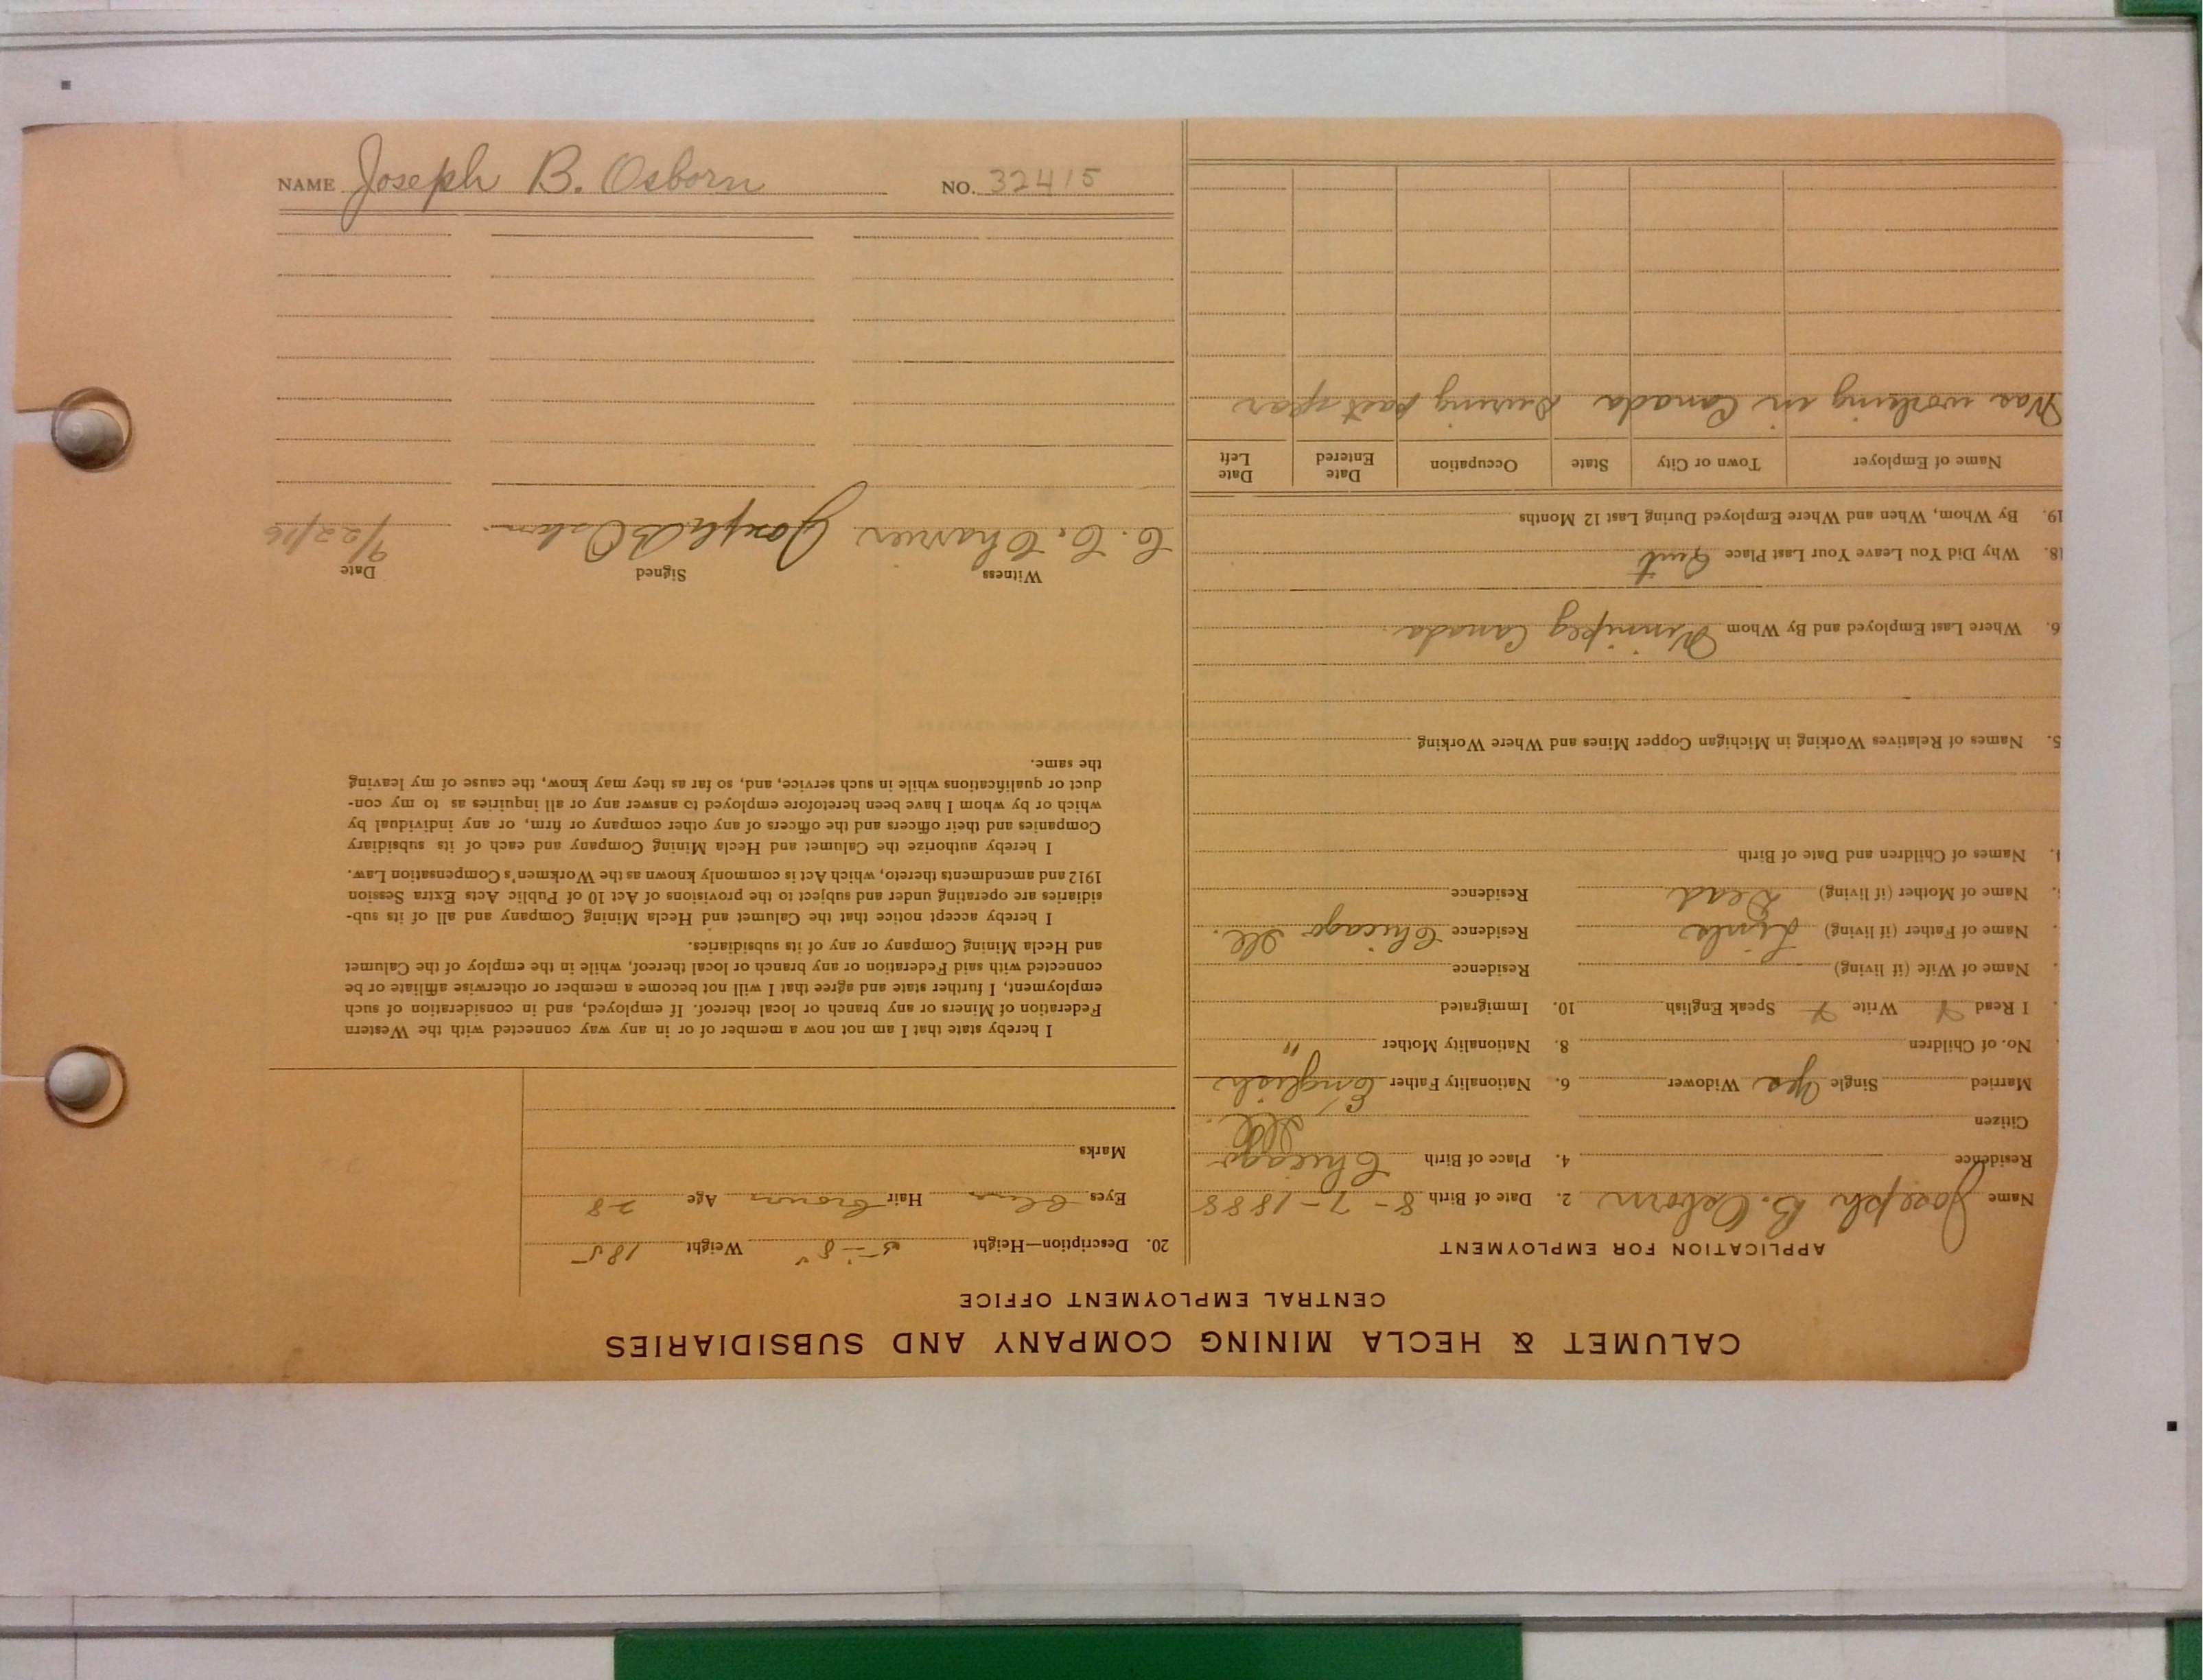 NAME Joseph B. Osborn NO. 32415
CALUMET & HECLA MINING COMPANY AND SUBSIDIARIES
CENTRAL EMPLOYMENT OFFICE
APPLICATION FOR EMPLOYMENT
Name Joseph B. Osborn 2. Date of Birth 8-7-1888
Residence 4. Place of Birth Chicago
Ill.
Citizen
Married Single Yes Widower 6. Nationality Father English
No. of Children 8. Nationality Mother "
I Read Write Speak English 10. Immigrated
Name of Wife (if living) Residence
Name of Father (if living) Residence Chicago Ill.
Name of Mother (if living) Dead Residence
Names of Children and Date of Birth
5. Names of Relatives Working in Michigan Copper Mines and Where Working
6. Where Last Employed and By Whom Winnipeg Canada.
18. Why Did You Leave Your Last Place Quit
19. By Whom, When and Where Employed During Last 12 Months
Name of Employer Town or City State Occupation Date Entered Date Left
Was working in Canada During past year
20. Description—Height 5-8" Weight 185
Eyes Blue Hair Brown Age 28
Marks
I hereby state that I am not now a member of or in any way connected with the Western
Federation of Miners or any branch or local thereof. If employed, and in consideration of such
employment, I further state and agree that I will not become a member or otherwise affiliate or be
connected with said Federation or any branch or local thereof, while in the employ of the Calumet
and Hecla Mining Company or any of its subsidiaries.
I hereby accept notice that the Calumet and Hecla Mining Company and all of its sub-
sidiaries are operating under and subject to the provisions of Act 10 of Public Acts Extra Session
1912 and amendments thereto, which Act is commonly known as the Workmen's Compensation Law.
I hereby authorize the Calumet and Hecla Mining Company and each of its subsidiary
Companies and their officers and the officers of any other company or firm, or any individual by
which or by whom I have been heretofore employed to answer any or all inquiries as to my con-
duct or qualifications while in such service, and, so far as they may know, the cause of my leaving
the same.
Witness Signed Date
C. C. Charrier Joseph B Osborn 9/22/16